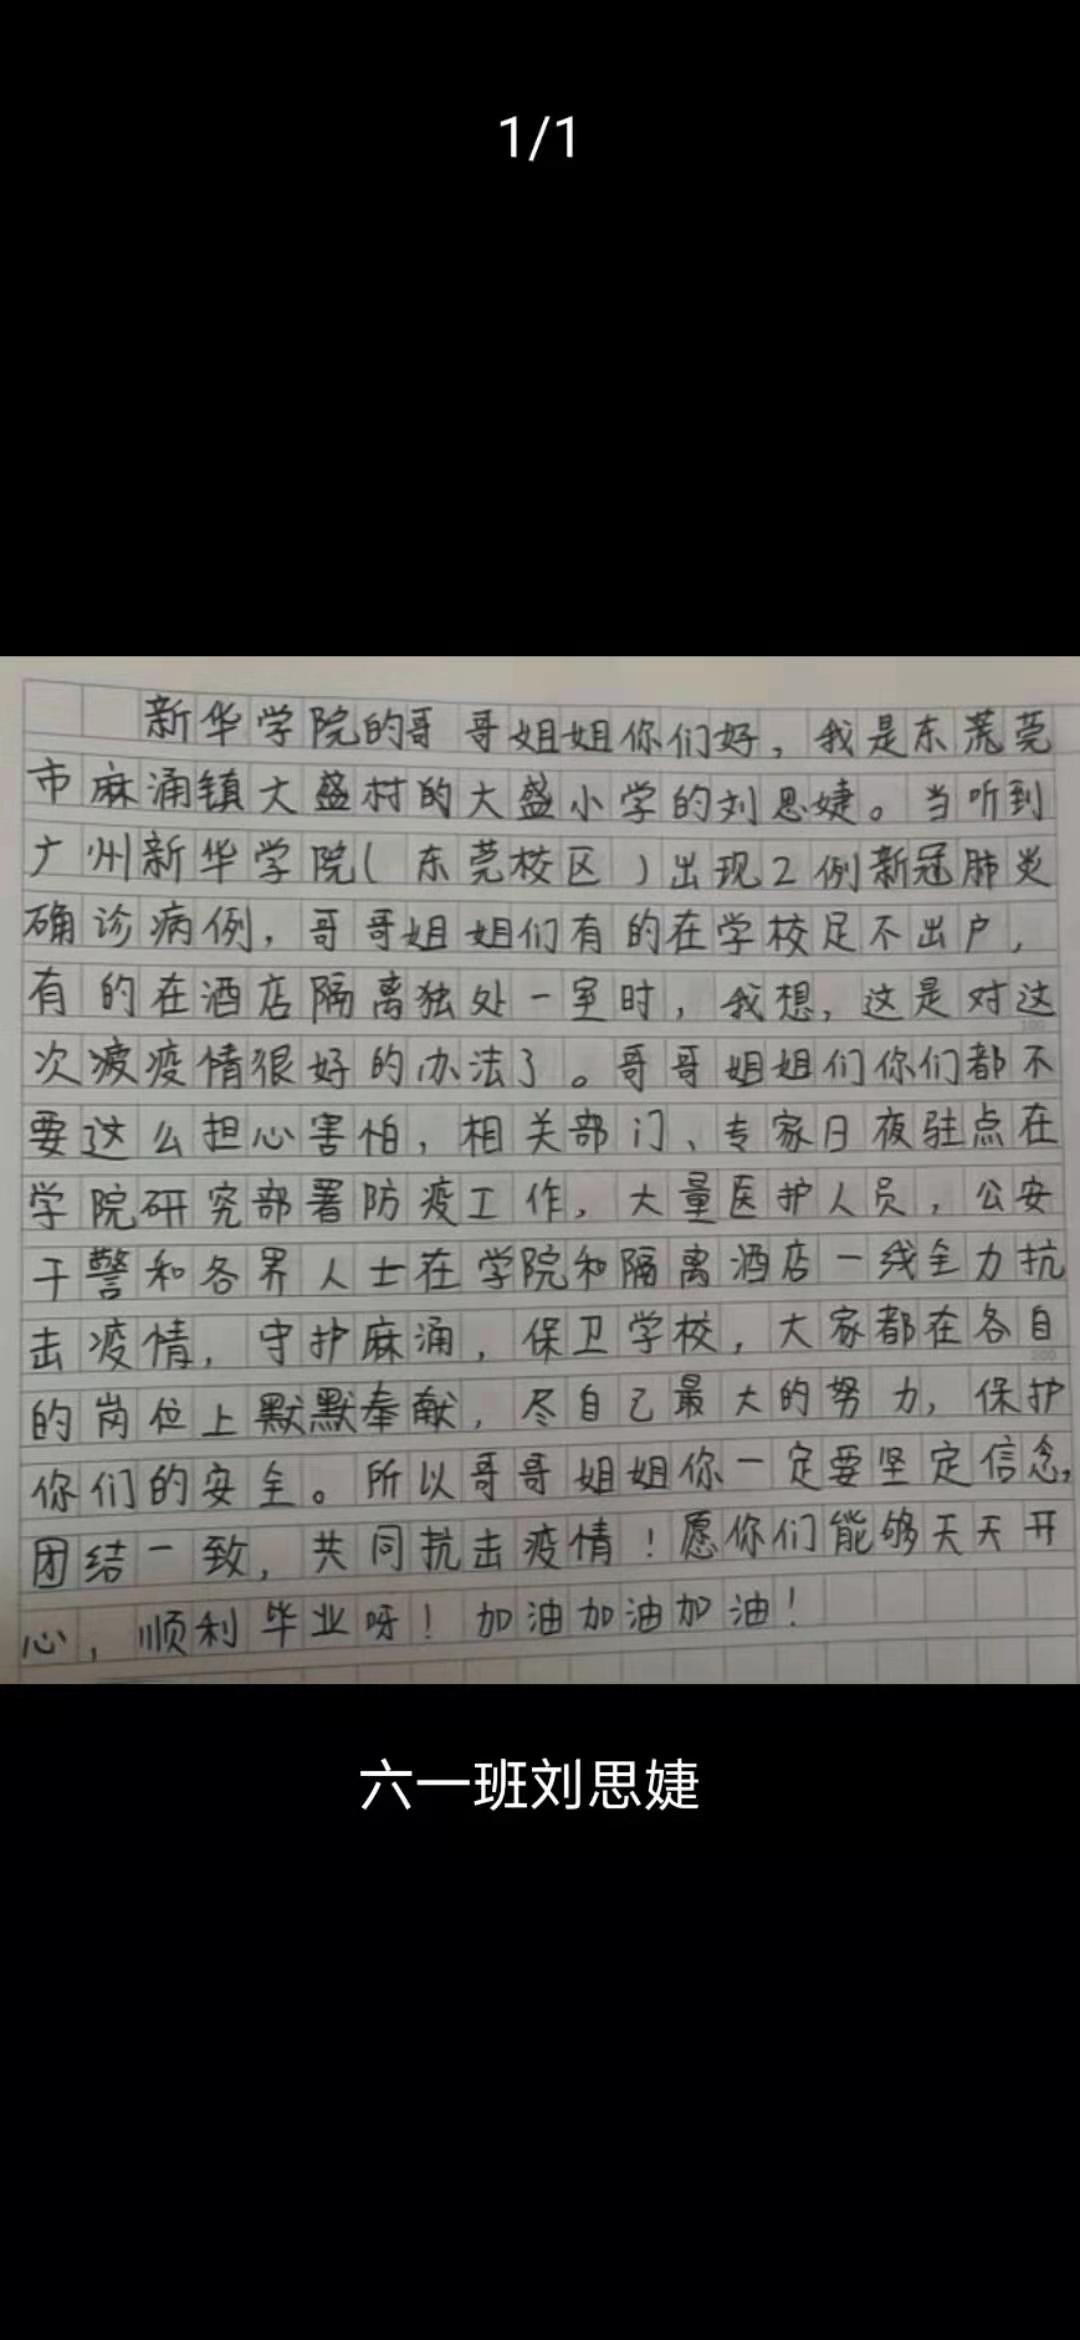 1/1
新华学院的哥哥姐姐你们好，我是东莞莞
市麻涌镇大盛村的大盛小学的刘思婕。当听到
广州新华学院(东莞校区)出现2例新冠肺炎
确诊病例，哥哥姐姐们有的在学校足不出户，
有的在酒店隔离独处一室时，我想，这是对这
次疫疫情很好的办法了。哥哥姐姐们你们都不
要这么担心害怕，相关部门、专家日夜驻点在
学院研究部署防疫工作，大量医护人员，公安
干警和各界人士在学院和隔离酒店一线全力抗
击疫情，守护麻涌，保卫学校，大家都在各自
的岗位上默默奉献，尽自己最大的努力，保护
你们的安全。所以哥哥姐姐你一定要坚定信念，
团结一致，共同抗击疫情！愿你们能够天天开
心，顺利毕业呀！加油加油加油！
六一班刘思婕